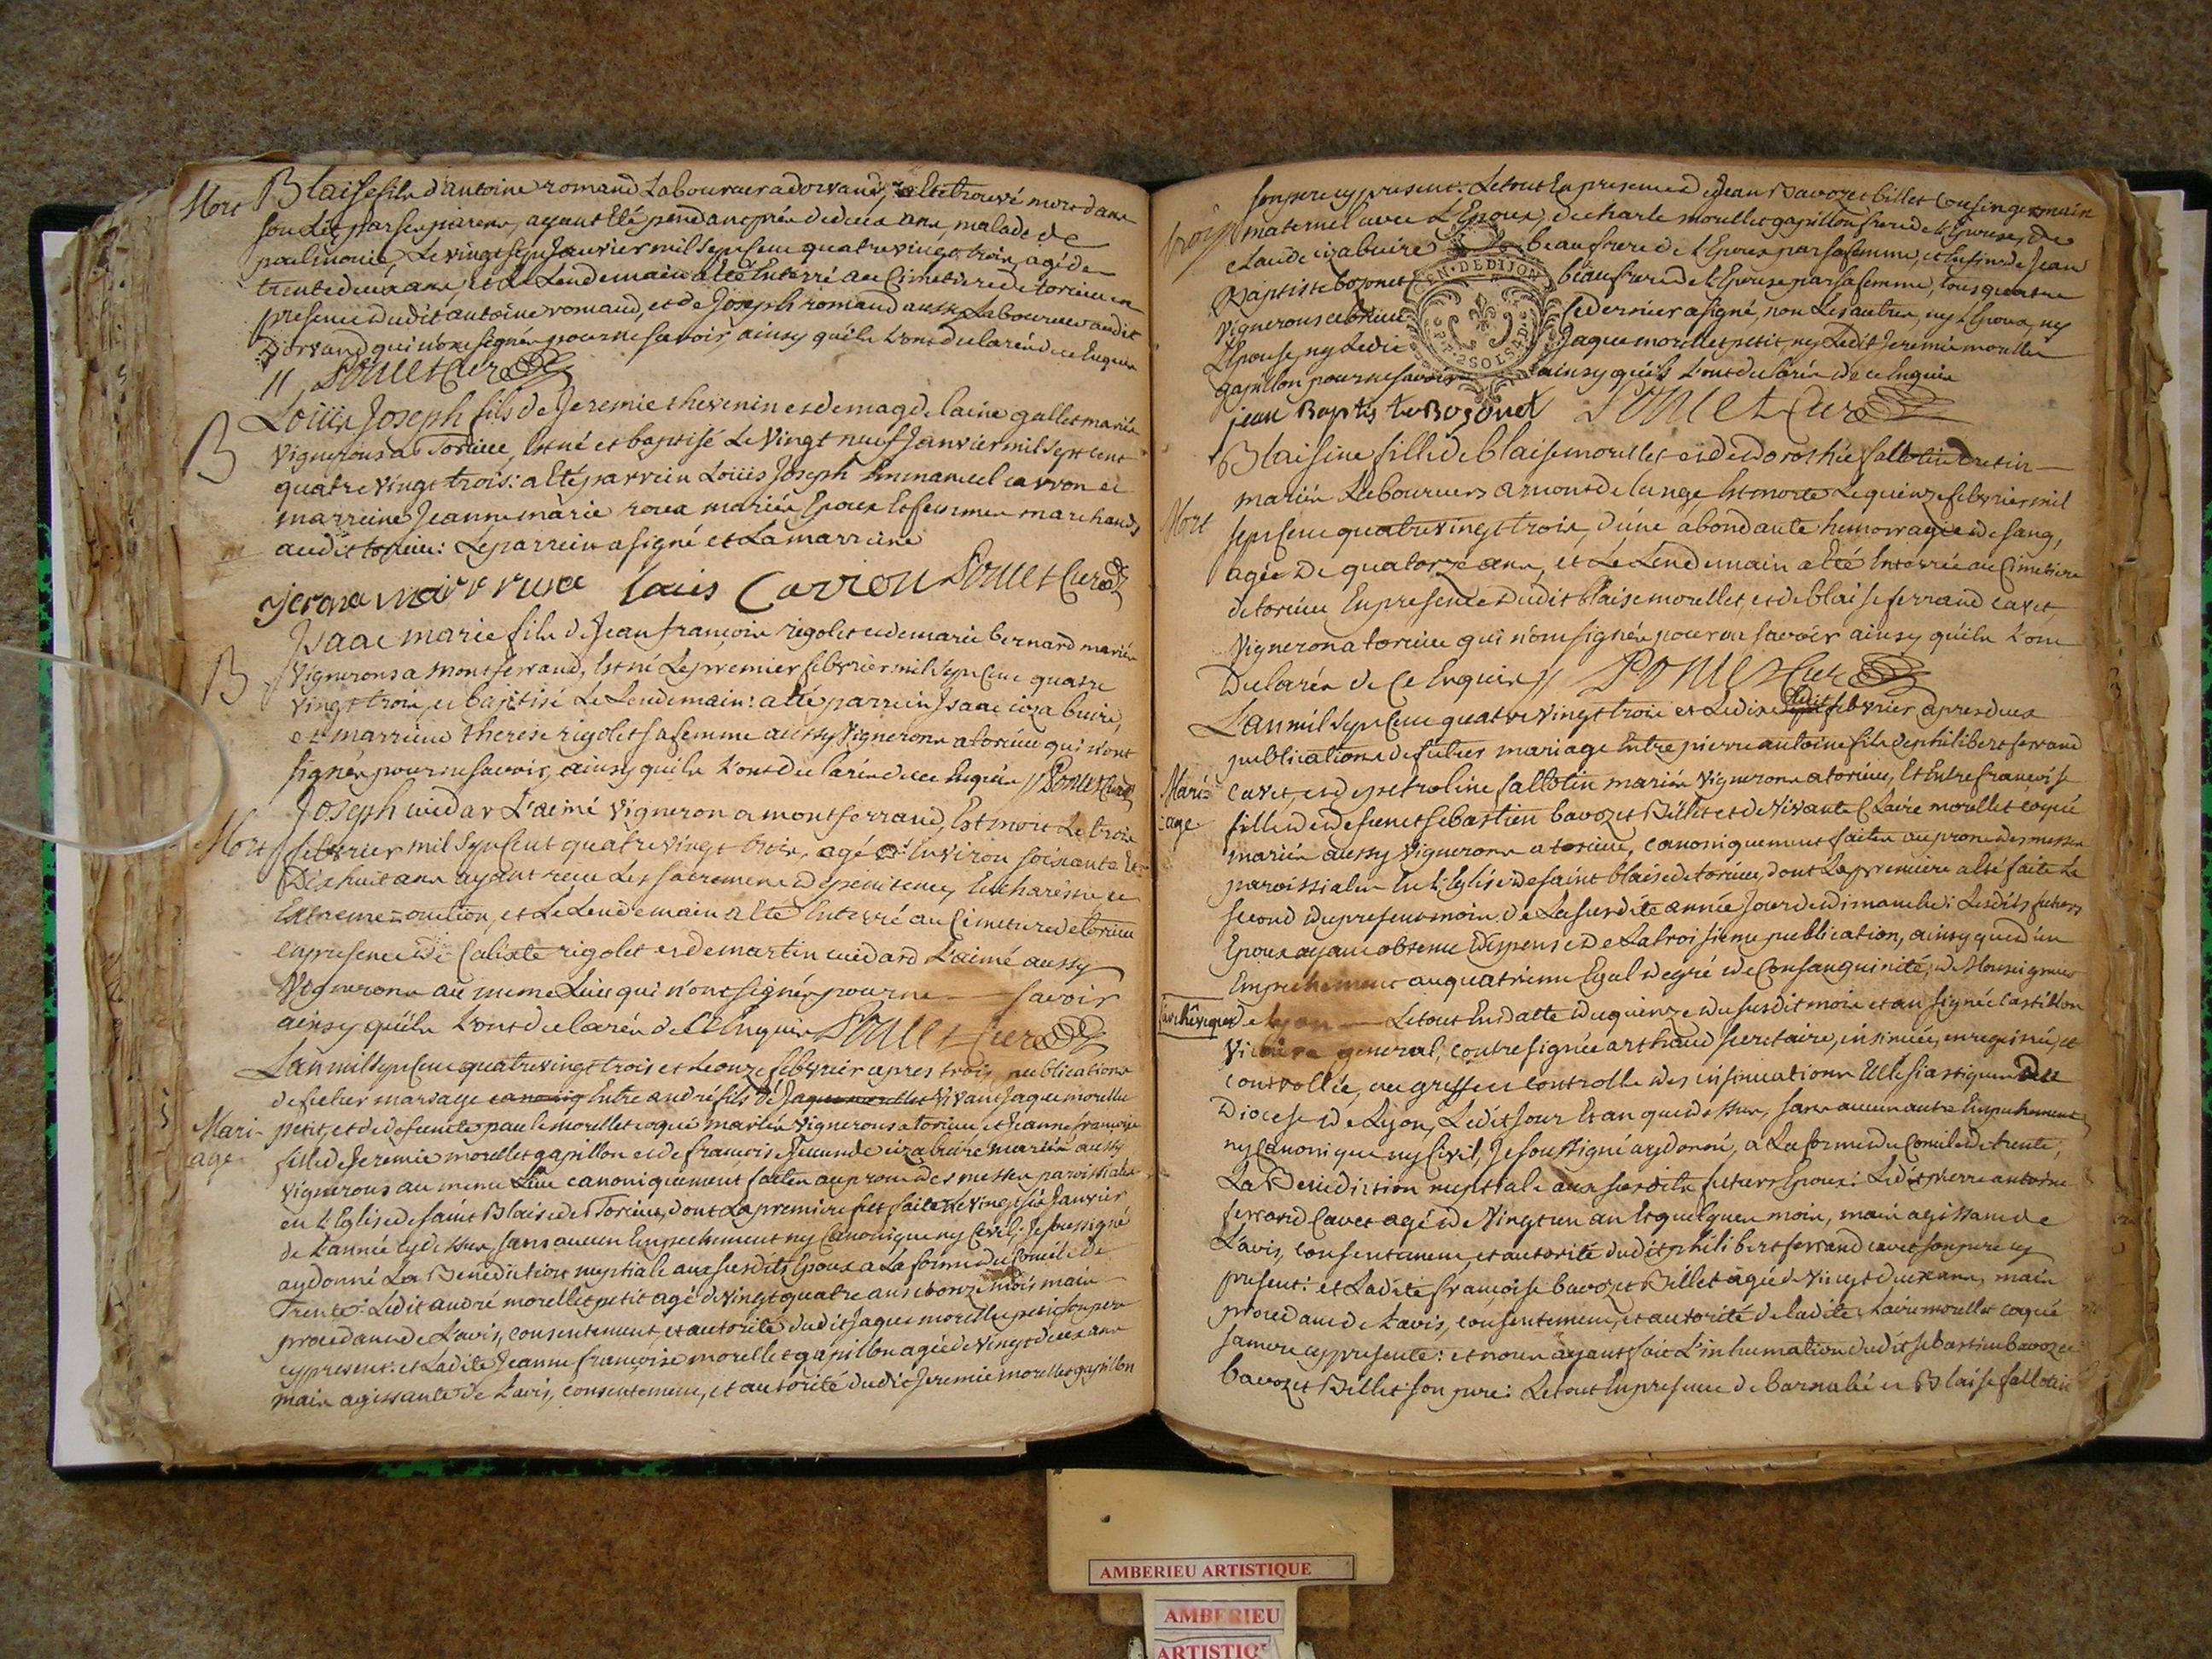 Mort Blaise fils d'antoine romand Laboureur a dorvand, a Eté trouvé mort dans
son Lit par ses parens, ayant Eté pendant près de deux ans malade de
poulmonie, Le vingt sept Janvier mil Sept Cent quatre vingt trois, agé de
trente deux ans, et Le Lendemain a Eté Enterré au Cimetiere de torcieu en
presence dudit antoine romand, et de Joseph romand aussy Laboureur audit
Dorvand qui n'ont signés pour ne savoir, ainsy quils L'ont declarés de ce Enquis
// Ponet Curé
Loüis Joseph fils de Jeremie thevenin et de magdelaine gallet mariés
B Vignerons a Torcieu, Est né et baptisé Le Vingt neuf Janvier mil Sept cent
quatre vingt trois: a Eté parrein Loüis Joseph Emmanuel carron et
marreine Jeanne marie roux mariés Epoux Et femme marchands
audit torcieu: Le parrein a signé et La marreine
Louis Carrion Ponet Curé
Isaac marie fils de Jean françois rigolet et de marie bernard mariés
B Vignerons a montferrand, Est né Le premier febvrier mil Sept Cent quatre
vingt trois, et baptisé Le Lendemain: a Eté parrein Isaac cizabuire,
et marreine therese rigolet sa femme aussy Vignerons a torcieu qui n'ont
signés pour ne savoir, ainsy quils L'ont declarés de ce Enquis // Ponet Curé
Joseph L'ainé Vigneron a montferrand, Est mort Le trois
Mort febvrier mil Sept Cent quatre vingt trois, agé d'Environ soixante Et
Dix huit ans ayant recu Les sacremens de penitence, Eucharistie et
Extreme-onction, et Le Lendemain a Eté Enterré au Cimetiere de torcieu
en presence de Calixte rigolet et de martin cuidard L'ainé aussy
Vignerons au meme Lieu qui n'ont signés pour ne — savoir
ainsy quils L'ont declarés de Ce Enquis Ponet Curé
L'an mil Sept Cent quatre vingt trois et Le onze febvrier apres trois publications
de futur mariage Entre andré fils de Vivant Jaque morellet
Mari- petit, et de defuncte paule morellet coqué mariés Vignerons a torcieu, et Jeanne françoise
age fille de Jeremie morellet gapillon et de françoise cizabuire mariés aussy
Vignerons au meme Lieu canoniquement faites au prone des messes paroissiales
en L'Eglise de saint Blaise de Torcieu, dont La premiere fut faite Le vingt six Janvier
de L'année cy dessus, sans aucun Empechement ny Canonique ny Civil, Je soussigné
ay donné La Benediction nuptiale aux susdits Epoux a La forme du Concile de
Trente: Ledit andré morellet petit agé de vingt quatre ans et onze mois main
procedant de L'avis, consentement, et autorité dudit Jaque morellet petit son pere
cy present: et Ladite Jeanne françoise morellet gapillon agée de Vingt deux ans
main agissante de L'avis, consentement, et autorité dudit Jeremie morellet gapillon
son pere cy present. Le tout En presence de Jean Bavozet billet Cousin germain
maternel avec L'Epoux, de charle morellet gapillon frere de L'Epouse, de
claude cizabuire beaufrere de L'Epoux par sa femme, et Enfin de Jean
Baptiste bozonet beaufrere de L'Epouse par sa femme, tous quatre
Vignerons Le dernier a signé, non Les autres, ny L'Epoux, ny
L'Epouse, ny Ledit Jaque morellet petit, ny Ledit Jeremie morellet
gapillon pour ne savoir ainsy quils L'ont declarés de ce Enquis
GEN. DE DIJON
jean Baptiste Bozonet Ponet Curé
Blaisine fille de blaise morellet et de dorothée fallotin cretin —
mariés Laboureurs a mont de lange, Est morte Le quinze febvrier mil
Mort Sept Cent quatre vingt trois, d'une abondante hemorragie de sang,
agée De quatorze ans, et Le Lendemain a Eté Enterrée au Cimetiere
de torcieu En presence dudit blaise morellet, et de blaise ferrand cavet,
Vigneron a torcieu qui n'ont signés pour ne savoir ainsy quils L'ont
Declarés de Ce Enquis // Ponet Curé
L'an mil Sept Cent quatre vingt trois et Le dix huit febvrier apres deux
publications de futur mariage Entre pierre antoine fils de philibert ferrand
Mari- cavet, et de petroline fallotin mariés Vignerons a torcieu, Et Entre françoise
age fille de defunct sebastien bavozet Billet et de Vivante Claire morellet coqué
mariés aussy Vignerons a torcieu, canoniquement faites au prone des messes
paroissiales En L'Eglise de saint blaise de torcieu, dont La premiere a Eté faite Le
second du present mois de La susdite année Jour de dimanche: Lesdits futurs
Epoux ayant obtenu Dispense de La troisieme publication, ainsy que d'un
Empechement au quatrieme Egal degré de Consanguinité, de Monseigneur
L'archêveque de Lyon — Le tout En datte du quinze du susdit mois et an signé Castillon
Vicaire general, contresignée arthaud secretaire, insinuée, enregistrée, et
controllée, au greffe et controlle des insinuations Ecclesiastiques du
Diocese de Lyon, Ledit Jour Et an que dessus, sans aucun autre Empechement
ny Canonique ny Civil, Je soussigné ay donné, a La forme du Concile de trente,
La Benediction nuptiale aux susdits futurs Epoux: Ledit pierre antoine
ferrand Cavet agé de Vingt un an Et quelques mois, main agissant de
L'avis, consentement, et autorité dudit philibert ferrand cavet son pere cy
present: et Ladite françoise bavozet Billet agée de Vingt deux ans, main
procedant de L'avis, consentement, et autorité de ladite Claire morellet coqué
sa mere cy presente: et nous ayant fait L'inhumation dudit sebastien bavozet
bavozet Billet son pere: Le tout En presence de barnabé et Blaise fallotin
AMBERIEU ARTISTIQUE
AMBERIEU
ARTISTIQ